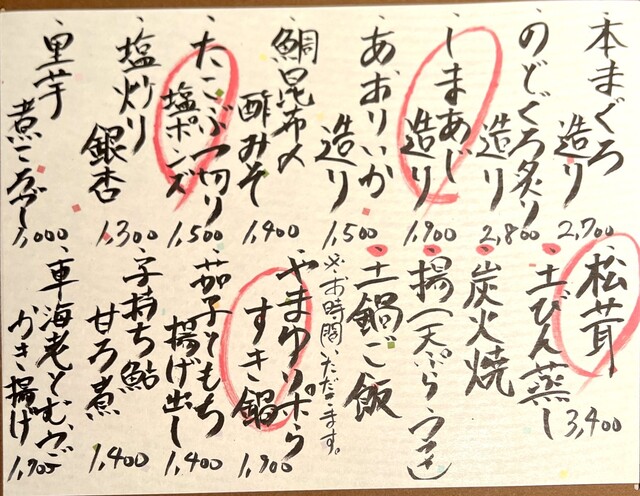 本まぐろ
造り
2,700
のどぐろ炙り
造り
2,800
しまあじ
造り
1,900
あおりいか
造り
1,500
鯛昆布〆
酢みそ
1,400
たこぶつ切り
塩ポンズ
1,500
塩炒り
銀杏
1,300
里芋
煮ころがし
1,000
松茸
土びん蒸し
3,400
炭火焼
揚(天ぷら
土鍋ご飯
お時間いただきます。
やまゆりポーク
すき鍋
1,900
茄子ともち
揚げ出し
1,400
子持ち鮎
甘ろ煮
1,400
車海老と
かき揚げ
1,900